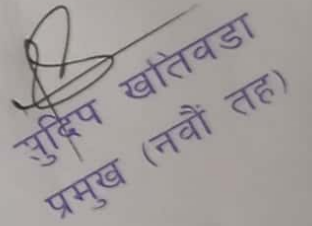 सुदिप खतिवडा
प्रमुख (नवौं तह)